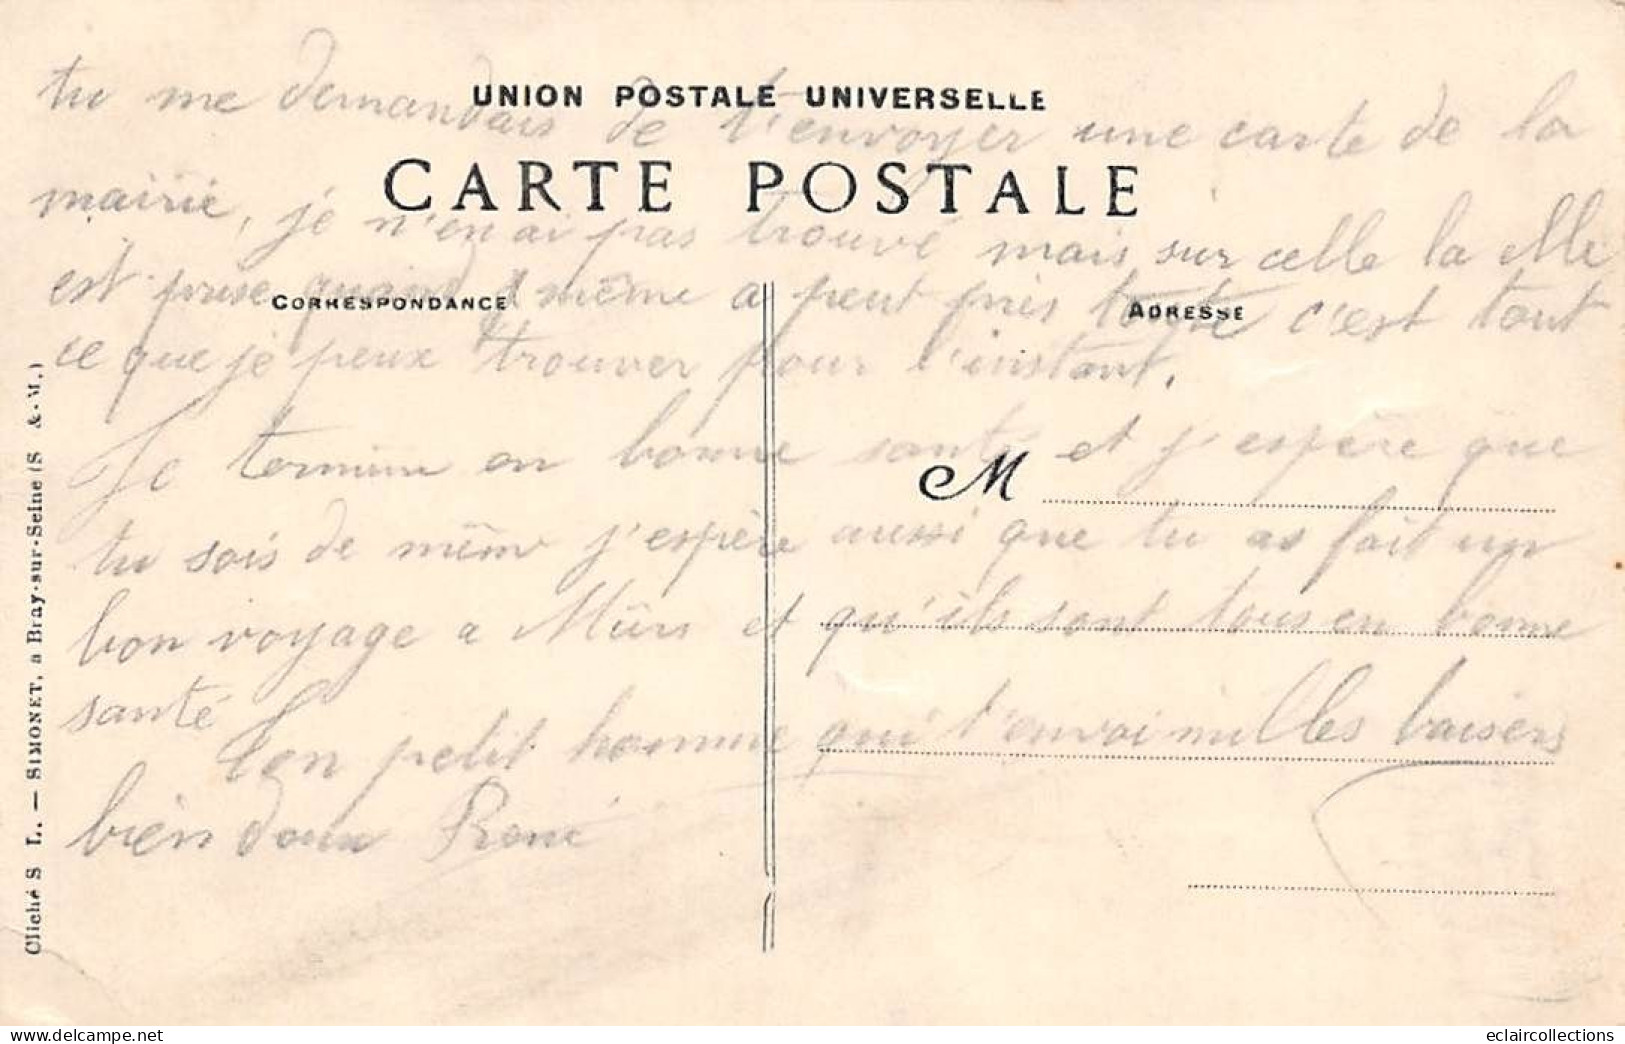 UNION POSTALE UNIVERSELLE
tu me demandais de t'envoyer une carte de la
CARTE POSTALE
mairie, je n'en ai pas trouvé mais sur celle la elle
est prise quand même a peut près toute c'est tout
CORRESPONDANCE
ADRESSE
ce que je peux trouver pour l'instant.
Je termine en bonne santé et j'espère que
M
tu sois de même j'espère aussi que tu as fait un
bon voyage a Mûrs et qu'ils sont tous en bonne
santé
Ton petit homme qui t'envoi milles baisers
bien doux René
Cliché S L. — SIMONET, a Bray-sur-Seine (S &-M.)
eclaircollections